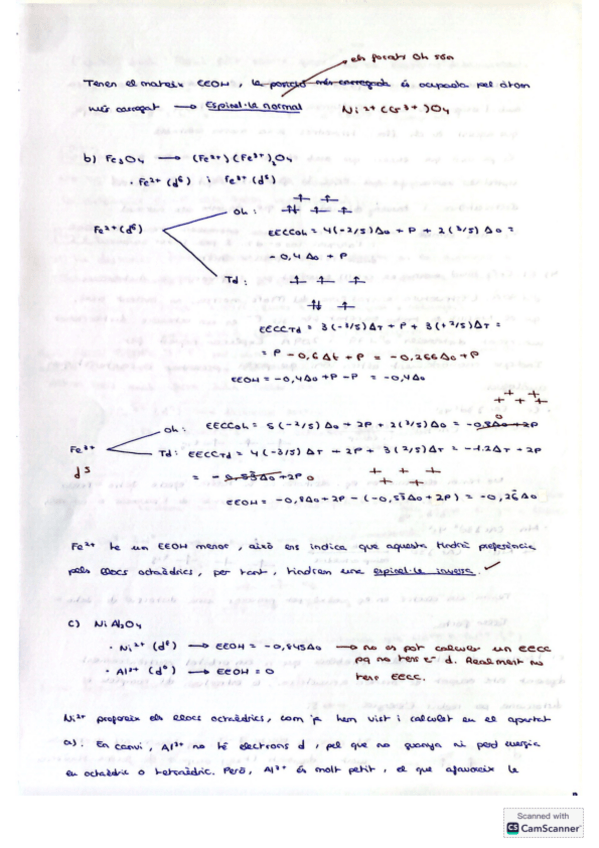 en forats Oh són
Tenen el mateix EEOH, la posició més carregada és ocupada pel àtom
més carregat → Espinel·la normal Ni²⁺(Cr³⁺)O₄
b) Fe₃O₄ → (Fe²⁺)(Fe³⁺)₂O₄
· Fe²⁺ (d⁶) i Fe³⁺ (d⁵)
Oh:
Fe²⁺(d⁶) EECCoh = 4(-2/5)Δo + P + 2(3/5)Δo =
- 0,4Δo + P
Td:
EECCTd = 3(-3/5)ΔT + P + 3(+2/5)ΔT =
= P - 0,6Δt + P = -0,266Δo + P
EEOH = -0,4Δo + P - P = -0,4Δo
Oh: EECCoh = 5(-2/5)Δo + 2P + 2(3/5)Δo = -0,8Δo + 2P
0
Fe³⁺ Td: EECCTd = 4(-3/5)ΔT + 2P + 3(2/5)ΔT = -1.2ΔT + 2P
d⁵ = -0,53Δo + 2P 0
EEOH = -0,8Δo + 2P - (-0,53Δo + 2P) = -0,26Δo
Fe²⁺ té un EEOH menor, això ens indica que aquesta tindrà preferència
pels llocs octaèdrics, per tant, tindrem una espinel·la inversa. ✓
c) NiAl₂O₄
· Ni²⁺ (d⁸) → EEOH = -0,845Δo → no es pot calcular un EECC
· Al³⁺ (d⁰) → EEOH = 0 pq no tens e⁻ d. Realment no
tens EECC.
Ni²⁺ prefereix els llocs octaèdrics, com ja hem vist i calculat en el apartat
a). En canvi, Al³⁺ no té electrons d, pel que no guanya ni perd energia
en octaèdric o tetraèdric. Però, Al³⁺ és molt petit, el que afavoreix la
Scanned with
CS CamScanner